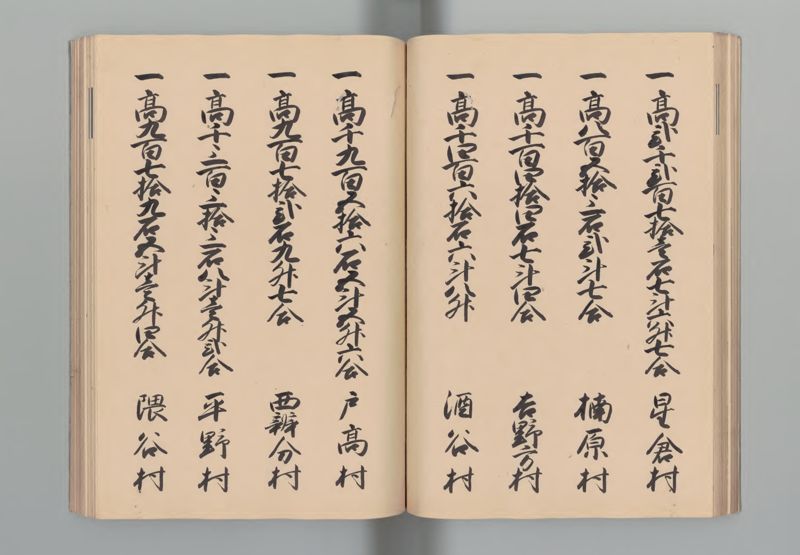 一高弐千弐百七拾壱石七斗六升七合 星倉村
一高八百五拾三石弐斗七合 楠原村
一高千百四拾四石七斗四合 吉野方村
一高千四百六拾石六斗八升 酒谷村
一高千九百五拾六石五斗五升六合 戸高村
一高九百七拾弐石九升七合 西辨分村
一高千三百三拾三石八斗壱升弐合 平野村
一高九百七拾九石五斗壱升四合 隈谷村